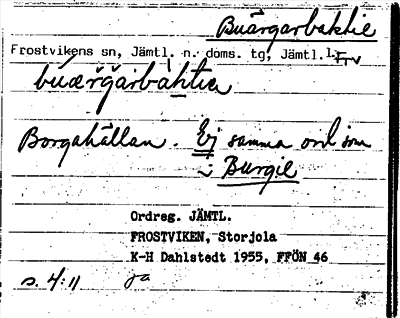 Buärgarbaktie
Frostvikens sn, Jämtl. n. doms. tg, Jämtl. l. Frv
Borgahällan. Ej samma ord som
i Burgil
Ordreg. JÄMTL.
FROSTVIKEN, Storjola
K-H Dahlstedt 1955, FFÖN 46
s. 4:11